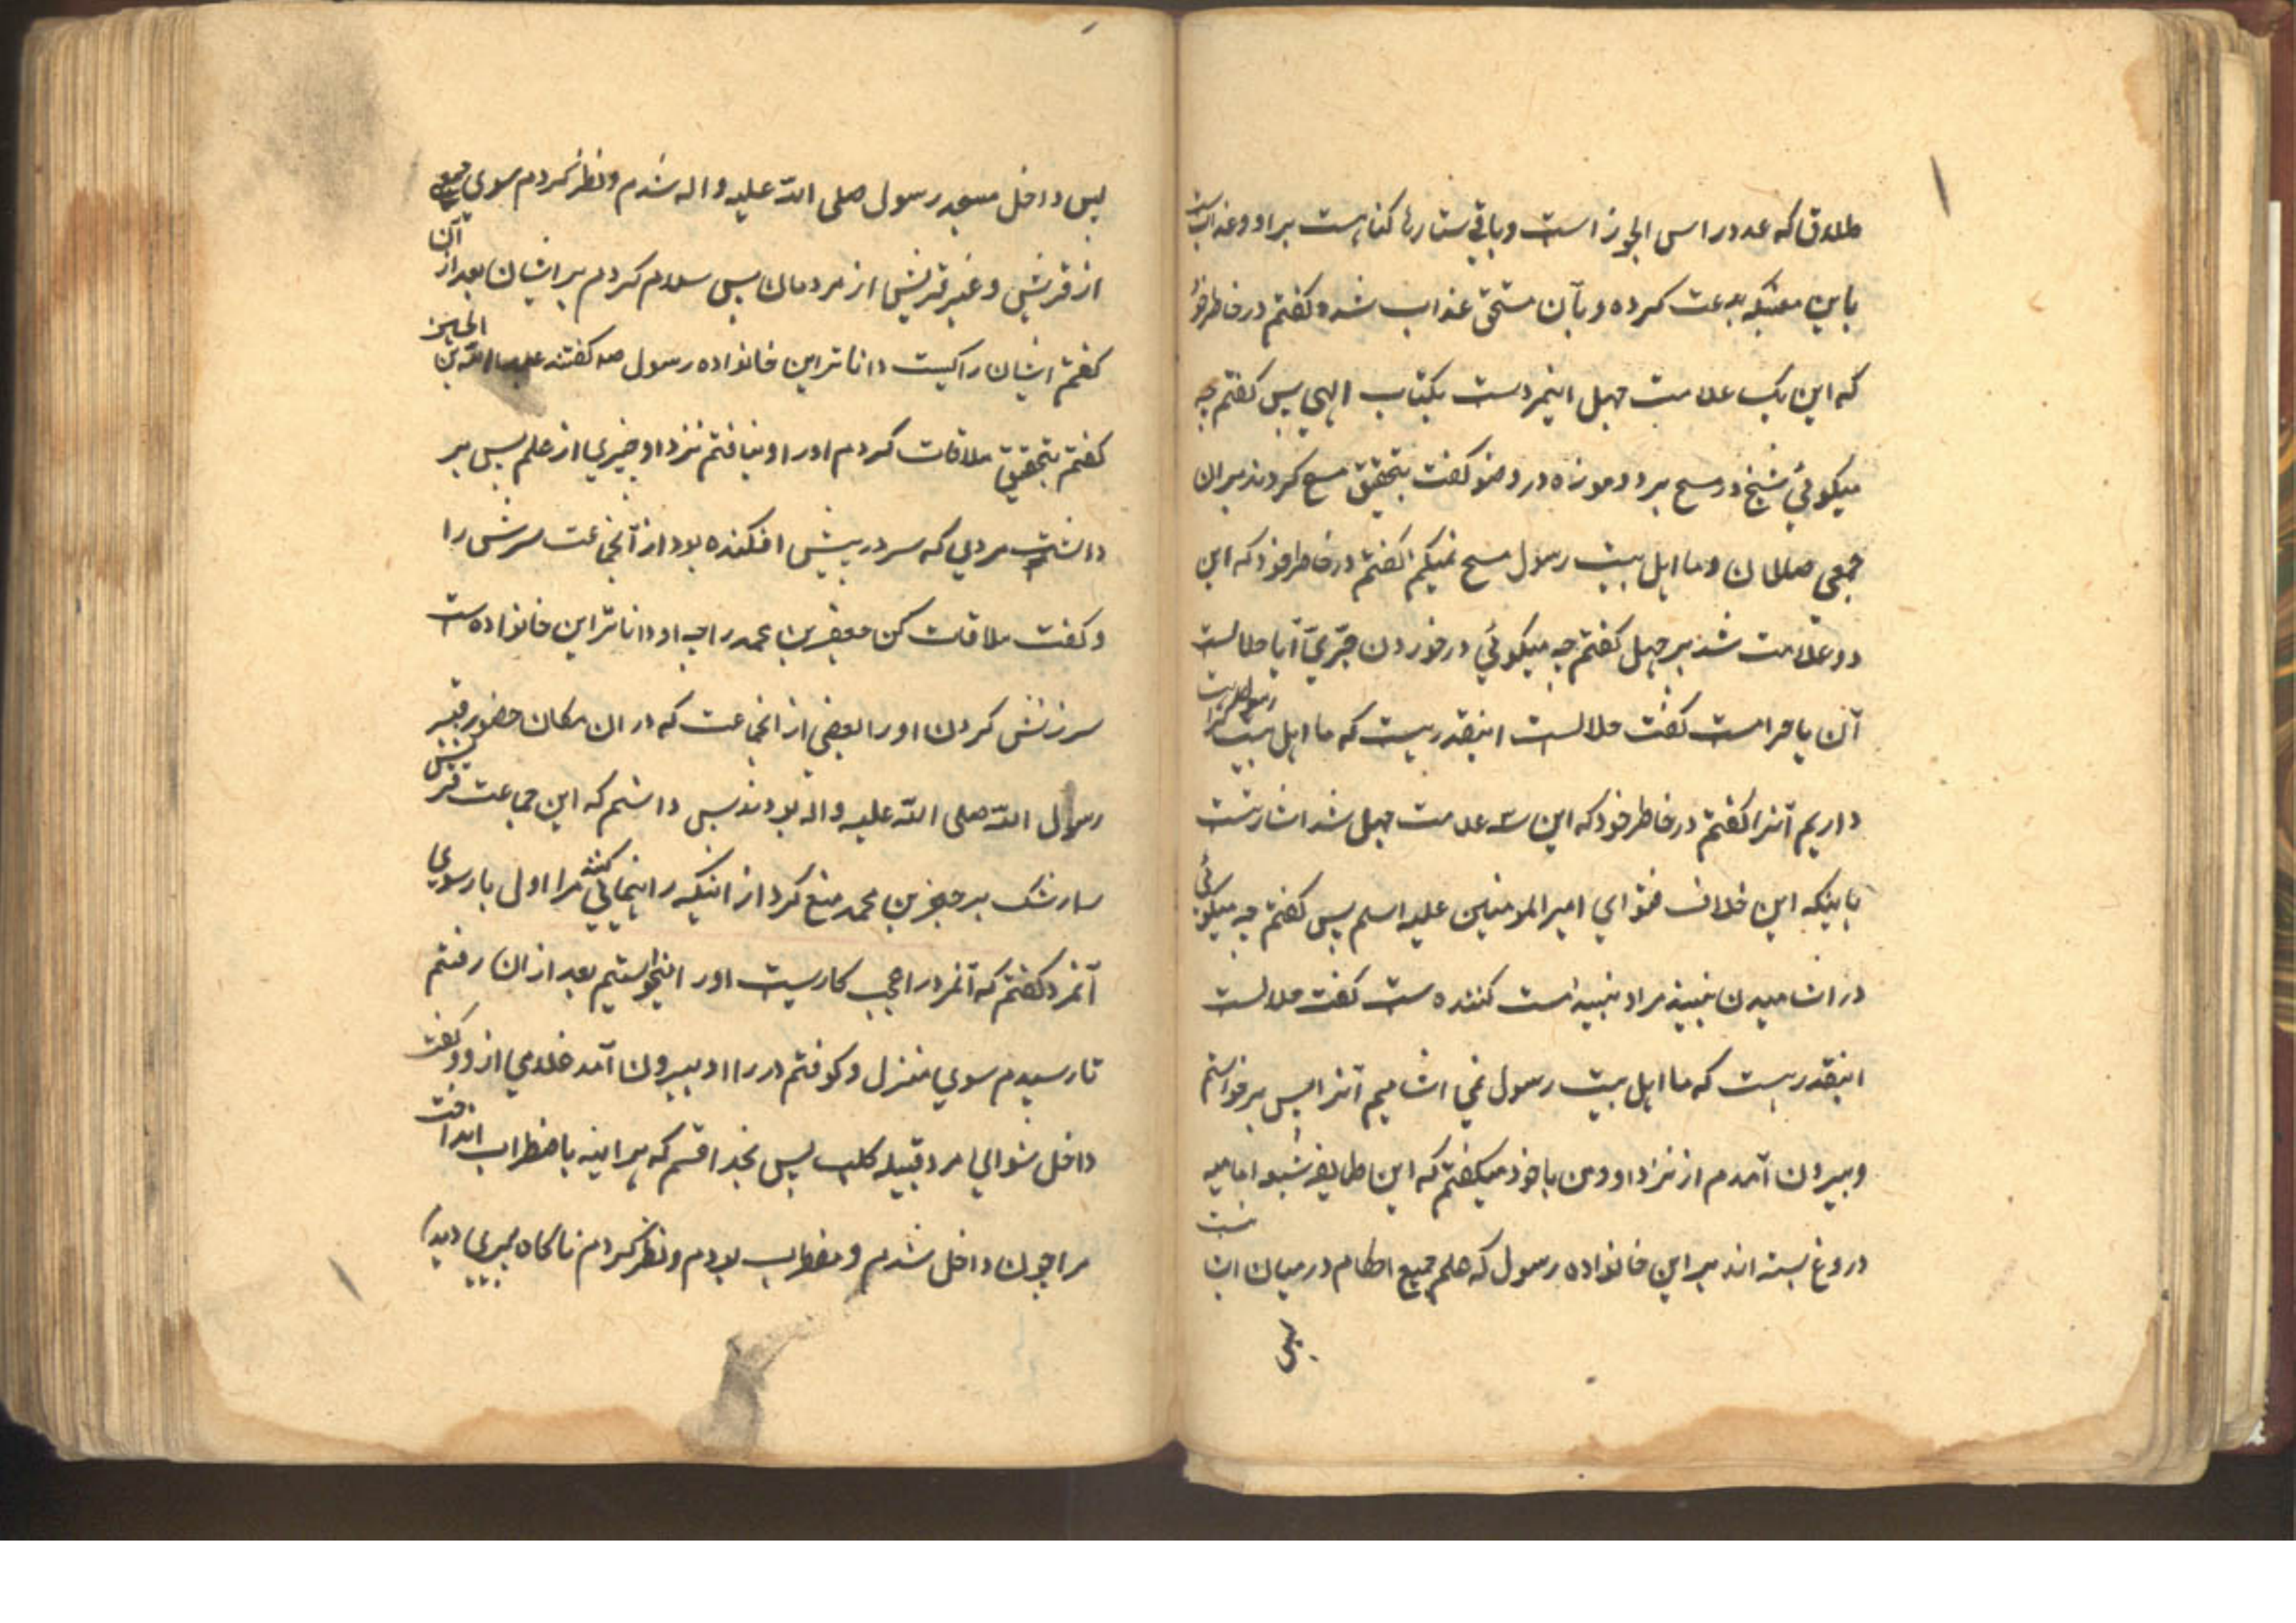 طلاق که عدد راس الجوزا است و باقی ستارها کناهست بر او و عذابست
باین معنیکه بدعت کرده و بآن مستحق عذاب شده کفتم در خاطر خود
که این یک علامت جهل اینمردست بکتاب الهی پس کفتم چه
میکوئی شیخ در مسح بر دو موزه در وضو کفت بتحقیق مسح کردند بر ان
جمعی صالحان و ما اهل بیت رسول مسح نمیکنم کفتم در خاطر خود که این
دو علامت شد بر جهل کفتم چه میکوئی در خوردن جرّیّ آیا حلالست
آن یا حرامست کفت حلالست اینقدر هست که ما اهل بیت رسول کراهت
داریم آنرا کفتم در خاطر خود که این سه علامت جهل شد اشارتست
باینکه این خلاف فتوای امیر المومنین علیه اسلم پس کفتم چه میکوئی
در اشامیدن نبیذ مراد نبیذ مست کننده ست کفت حلالست
اینقدر هست که ما اهل بیت رسول نمی اشامیم آنرا پس برخواستم
و بیرون آمدم از نزد او و من با خود میکفتم که این طایفه شیعه امامیه
دروغ بسته اند بر این خانواده رسول که علم جمیع احکام در میان ایشانست
پس
پس داخل مسجد رسول صلی اللّه علیه و اله شدم و نظر کردم سوی جمعی
از قریش و غیر قریش از مردمان پس سلام کردم بر ایشان بعد از آن
کفتم ایشان را کیست داناتر این خانواده رسول صه کفتند عبد اللّه بن الحسن
کفتم بتحقیق ملاقات کردم اورا و نیافتم نزد او چیزی از علم پس بر
داشت مردی که سر در پیش افکنده بود از آنجماعت سرش را
و کفت ملاقات کن جعفر بن محمد را چه او داناتر این خانواده ست
سرزنش کردن اورا بعضی از انجماعت که در ان مکان حضور قبر
رسول اللّه صلی اللّه علیه و اله بودند پس دانستم که این جماعت قریش
را رشک بر جعفر بن محمد منع کرد از اینکه راهنمائی کنند مرا اول بار سوی
آنمرد کفتم که آنمرد را عجب کاریست اورا میخواستیم بعد از ان رفتم
تا رسیدم سوی منزل و کوفتم در را او بیرون آمد غلامی از او و کفت
داخل شو ای مرد قبیله کلب پس بخدا قسم که هراینه باضطراب انداخت
مرا چون داخل شدم و مضطرب بودم و نظر کردم ناکاه پیری دیدم